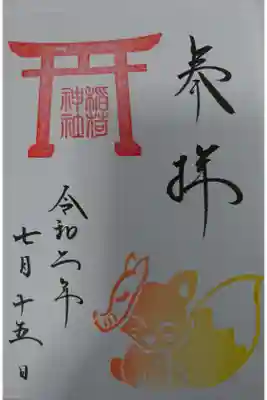 奉拝
稲荷
神社
令和二年
七月十五日